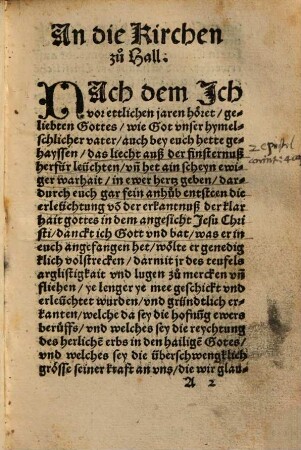 An die Kirchen
zů Hall:
NAch dem Ich
vor ettlichen jaren höret / ge-
liebten Gottes / wie Got vnser hymel-
schlicher vater / auch bey euch hette ge-
hayssen / das liecht auß der finsternuß
herfür leüchten / vñ het ain scheyn ewi-
ger warhait / in ewer hertz geben / dar-
durch euch gar fein anhůb entsteen die
erleüchtung vō der erkantnuß der klar
hait gottes in dem angesicht Jesu Chri
sti / danckt ich Gott vnd bat / was er in
euch angefangen het / wölte er genedig
klich volstrecken / darmit jr des teufels
arglistigkait vnd lugen zů mercken vñ
fliehen / ye lenger ye mee geschickt vnd
erleüchtet wurden / vnd gründtlich er-
kanten / welche da sey die hofnūg ewers
berůffs / vnd welches sey die reychtung
des herlichē erbs in den hailigē Gotes /
vnd welches sey die überschwengklich
grösse seiner kraft an vns / die wir glau-
A 2